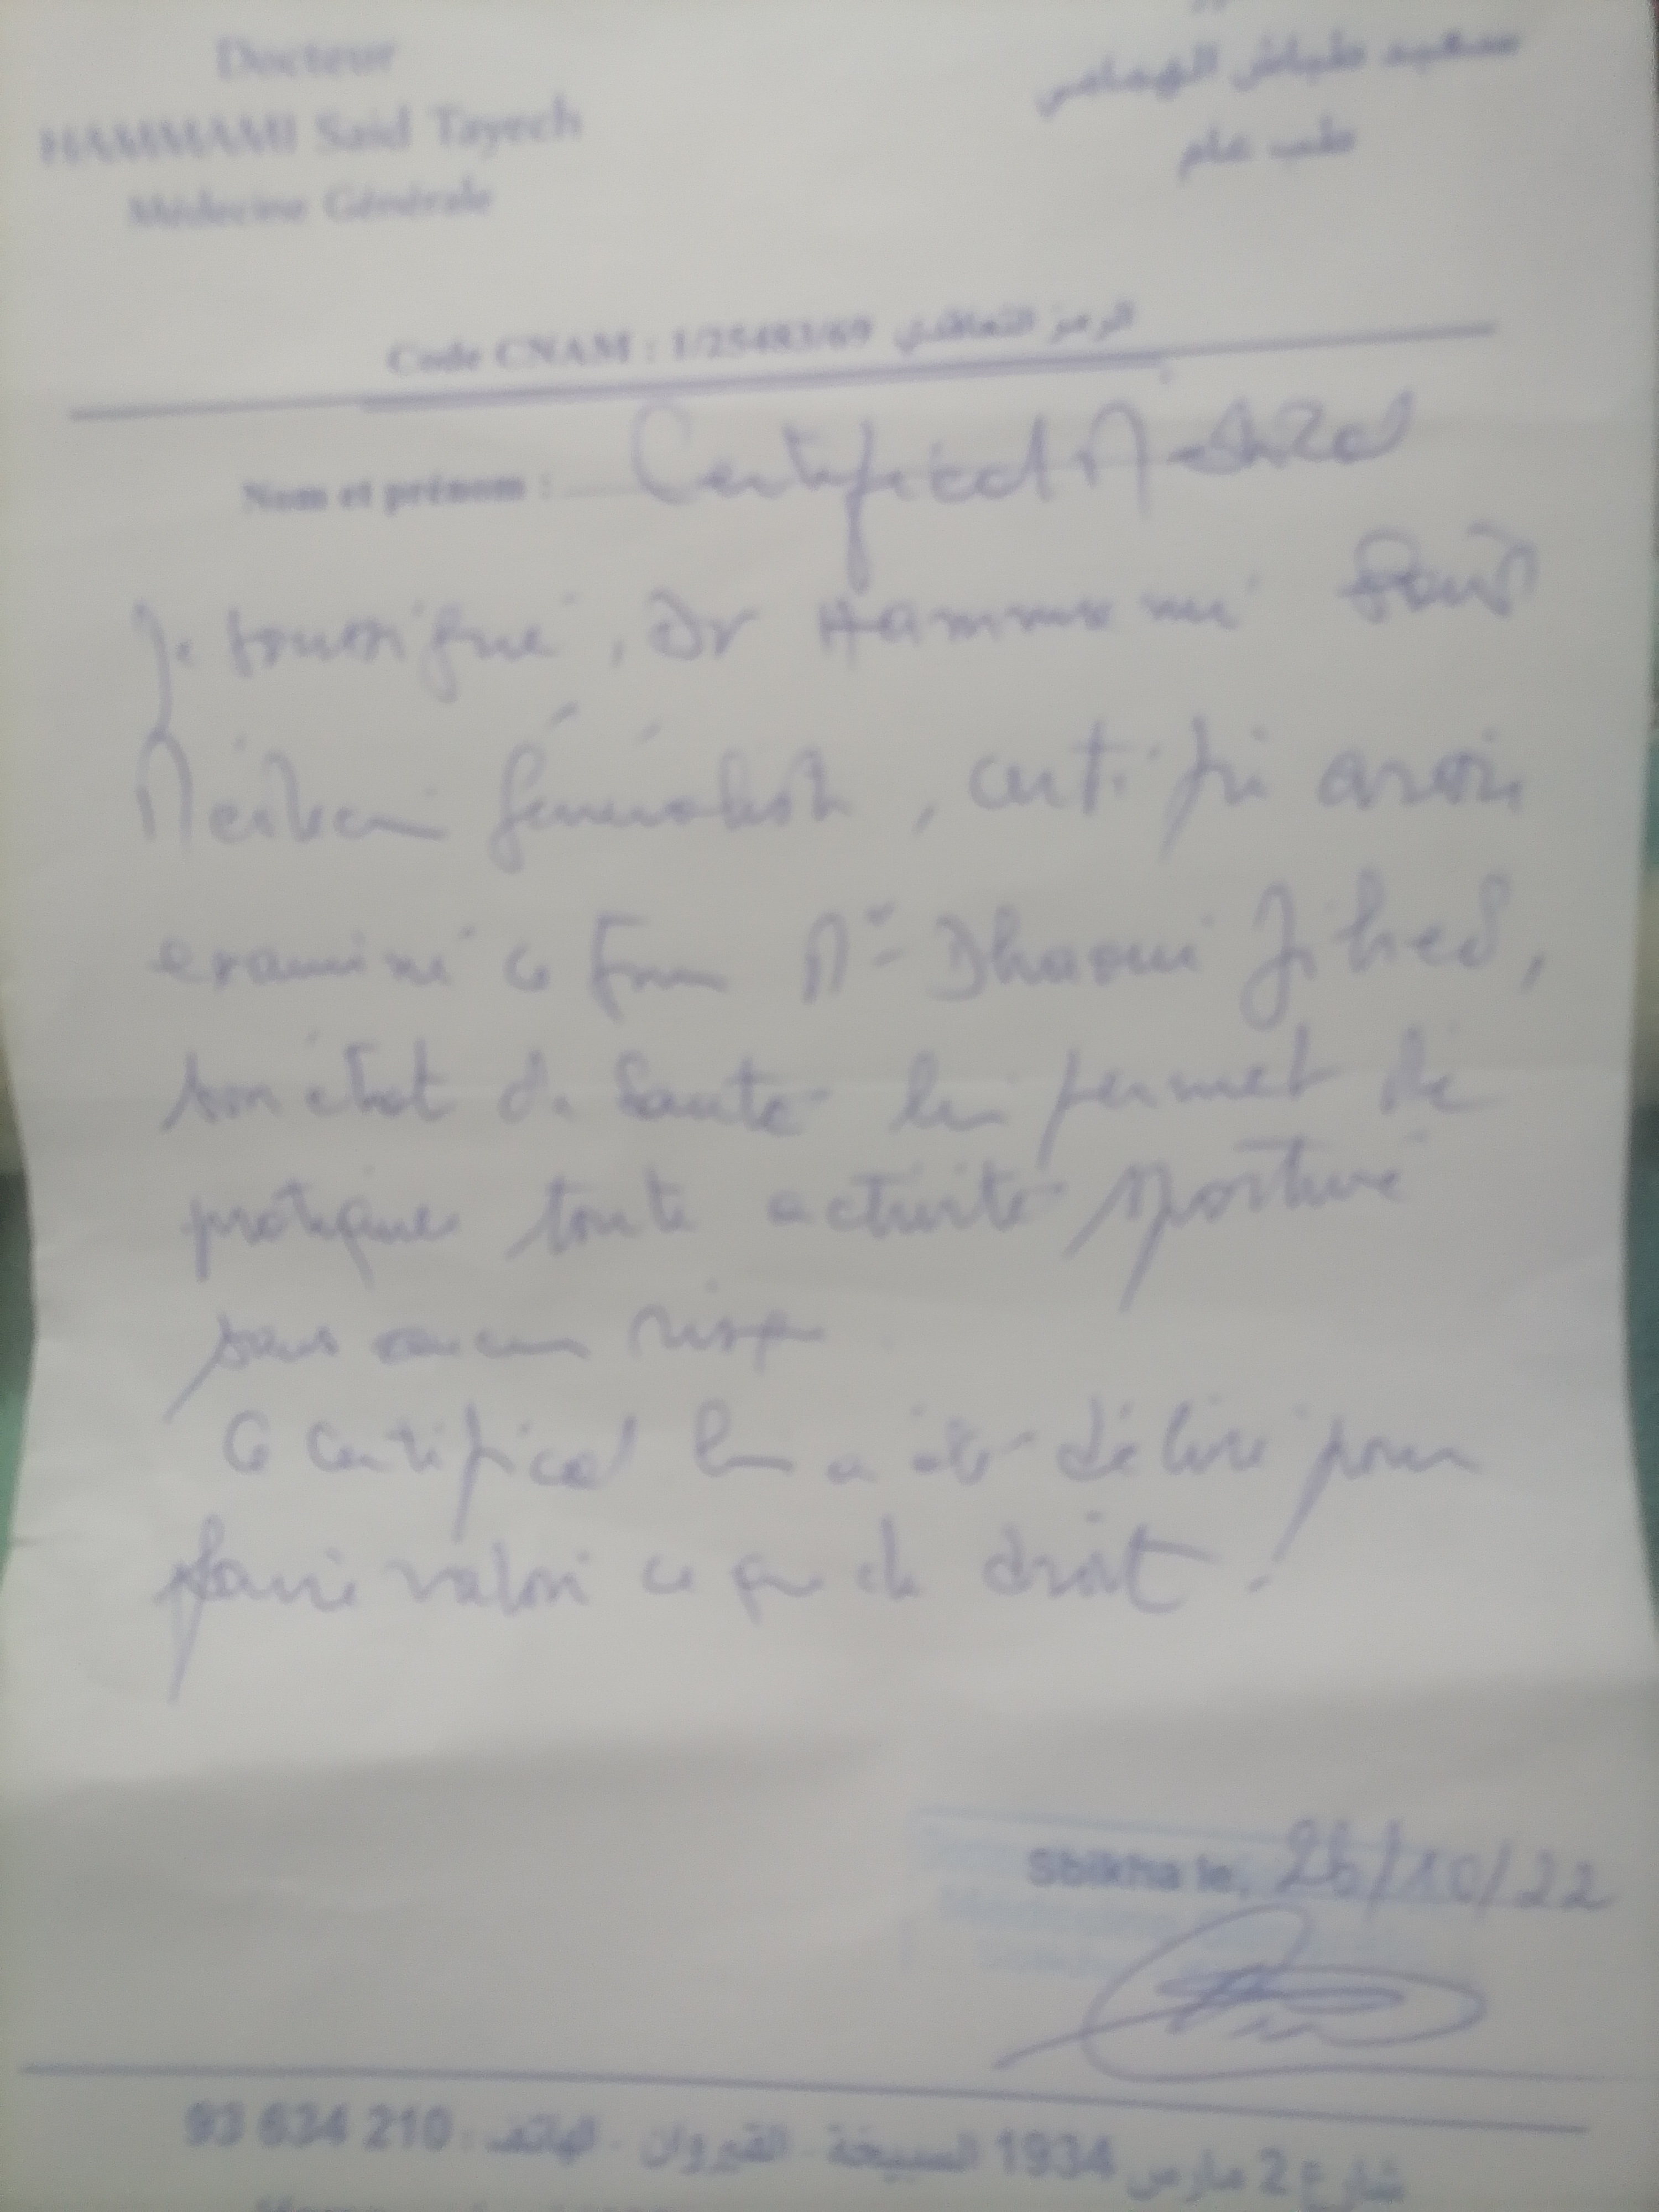 Docteur
HAMMAMI Said Tayech
Médecine Générale
سعيد طياش الهمامي
طب عام
Code CNAM : 1/25483/69 الرمز التعاقدي
Nom et prénom : Certificat Médical
Je soussigné, Dr Hammami Said
Médecin généraliste, certifie avoir
examiné ce jour Mr Dhaoui Jihed,
son état de santé lui permet de
pratiquer toute activité sportive
sans aucun risque
Ce certificat lui a été délivré pour
faire valoir ce que de droit.
Sbikha le, 26/10/22
شارع 2 مارس 1934 السبيخة - القيروان - الهاتف : 93 634 210